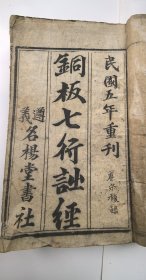 民國五年重刊
銅板七行詩經
遵義名楊堂書社